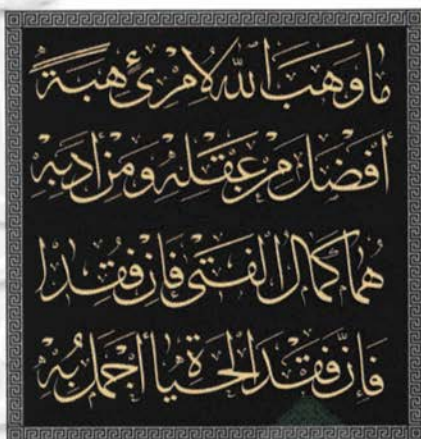 ما وَهَبَ اللهُ لِامْرِئٍ هِبَةً
أَفْضَلَ مِنْ عَقْلِهِ وَمِنْ أَدَبِهْ
هُمَا كَمَالُ الْفَتَى فَإِنْ فُقِدَا
فَإِنَّ فَقْدَ الْحَيَاةِ أَجْمَلُ بِهْ